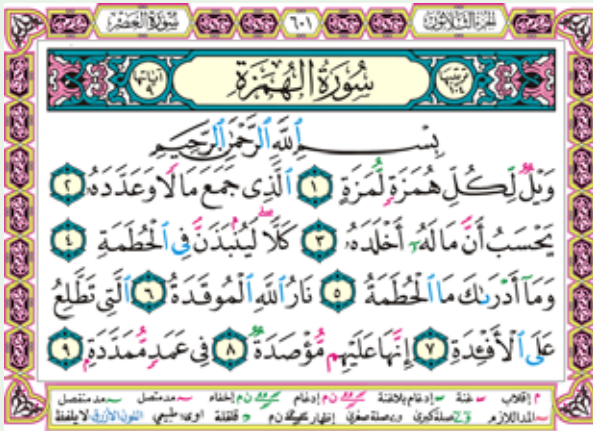 سُورَةُ العَصْرِ ٦٠١ الجُزْءُ الثَّلَاثُونَ
ترتيبها ١٠٤ سُورَةُ الهُمَزَةِ آياتها ٩
بِسْمِ ٱللَّهِ ٱلرَّحْمَٰنِ ٱلرَّحِيمِ
وَيْلٌ لِّكُلِّ هُمَزَةٍ لُّمَزَةٍ ١ ٱلَّذِى جَمَعَ مَالًا وَعَدَّدَهُۥ ٢
يَحْسَبُ أَنَّ مَالَهُۥٓ أَخْلَدَهُۥ ٣ كَلَّا ۖ لَيُنۢبَذَنَّ فِى ٱلْحُطَمَةِ ٤
وَمَآ أَدْرَىٰكَ مَا ٱلْحُطَمَةُ ٥ نَارُ ٱللَّهِ ٱلْمُوقَدَةُ ٦ ٱلَّتِى تَطَّلِعُ
عَلَى ٱلْأَفْـِٔدَةِ ٧ إِنَّهَا عَلَيْهِم مُّؤْصَدَةٌ ٨ فِى عَمَدٍ مُّمَدَّدَةٍۭ ٩
م إقلاب غنة إدغام بلاغنة ن م إدغام ن م إخفاء مد متصل مد منفصل
المد اللازم صلة كبرى صلة صغرى إظهار ن م قلقلة اوى طبيعي اللون الأزرق لا يلفظ